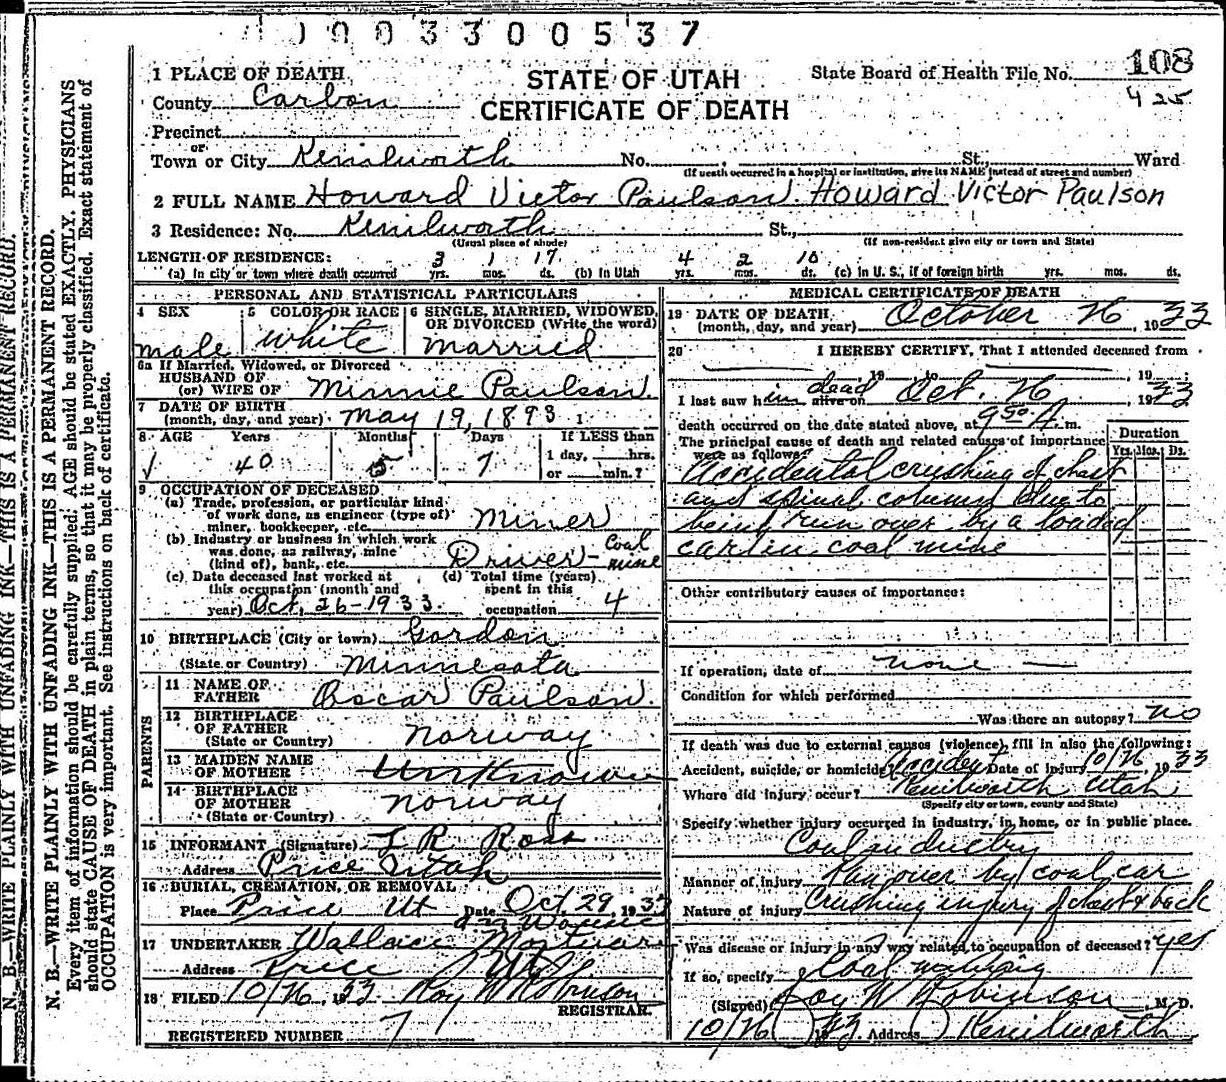 0003300537
1 PLACE OF DEATH
STATE OF UTAH
CERTIFICATE OF DEATH
State Board of Health File No. 108
425
County Carbon
Precinct
or
Town or City Kenilworth No. St., Ward
(If death occurred in a hospital or institution, give its NAME instead of street and number)
2 FULL NAME Howard Victor Paulson. Howard Victor Paulson
3 Residence: No. Kenilworth St.,
(Usual place of abode) (If non-resident give city or town and State)
LENGTH OF RESIDENCE:
(a) In city or town where death occurred 3 yrs. 1 mos. 17 ds. (b) In Utah 4 yrs. 2 mos. 10 ds. (c) In U. S., if of foreign birth yrs. mos. ds.
PERSONAL AND STATISTICAL PARTICULARS
4 SEX male
5 COLOR OR RACE white
6 SINGLE, MARRIED, WIDOWED, OR DIVORCED (Write the word) married
6a If Married, Widowed, or Divorced
HUSBAND OF
(or) WIFE OF Minnie Paulson.
7 DATE OF BIRTH
(month, day, and year) May 19, 1893
8 AGE Years 40 Months 5 Days 7 If LESS than
1 day, hrs.
or min.?
9 OCCUPATION OF DECEASED
(a) Trade, profession, or particular kind
of work done, as engineer (type of)
miner, bookkeeper, etc. Miner
(b) Industry or business in which work
was done, as railway, mine
(kind of), bank, etc. Driver - Coal mine
(c) Date deceased last worked at
this occupation (month and
year) Oct. 26-1933
(d) Total time (years)
spent in this
occupation 4
10 BIRTHPLACE (City or town) Gordon
(State or Country) Minnesota
PARENTS
11 NAME OF
FATHER Oscar Paulson.
12 BIRTHPLACE
OF FATHER
(State or Country) Norway
13 MAIDEN NAME
OF MOTHER Unknown
14 BIRTHPLACE
OF MOTHER
(State or Country) Norway
15 INFORMANT (Signature) L R Ross
Address Price Utah
16 BURIAL, CREMATION, OR REMOVAL
Place Price Ut Date Oct. 29, 1933
17 UNDERTAKER Wallace Mortuary
Address Price Utah
18 FILED 10/26, 1933 Roy W Robinson
REGISTRAR.
REGISTERED NUMBER 7
MEDICAL CERTIFICATE OF DEATH
19 DATE OF DEATH
(month, day, and year) October 26, 1933
20 I HEREBY CERTIFY, That I attended deceased from
, 19 , to , 19 ;
I last saw him dead alive on Oct. 26, 1933
death occurred on the date stated above, at 9 50 A. m.
The principal cause of death and related causes of importance
were as follows:
Duration
Yrs. Mos. Ds.
Accidental crushing of chest
and spinal column due to
being run over by a loaded
car in coal mine
Other contributory causes of importance:
If operation, date of none
Condition for which performed
Was there an autopsy? no
If death was due to external causes (violence), fill in also the following:
Accident, suicide, or homicide? Accident Date of injury 10/26 1933
Where did injury occur? Kenilworth Utah
(Specify city or town, county and State)
Specify whether injury occurred in industry, in home, or in public place.
Coal industry
Manner of injury Run over by coal car
Nature of injury Crushing injury of chest & back
Was disease or injury in any way related to occupation of deceased? yes
If so, specify Coal mining
(Signed) Roy W Robinson, M. D.
10/26 1933. Address Kenilworth
N. B.—WRITE PLAINLY WITH UNFADING INK—THIS IS A PERMANENT RECORD.
N. B.—WRITE PLAINLY WITH UNFADING INK—THIS IS A PERMANENT RECORD.
Every item of information should be carefully supplied. AGE should be stated EXACTLY. PHYSICIANS
should state CAUSE OF DEATH in plain terms, so that it may be properly classified. Exact statement of
OCCUPATION is very important. See instructions on back of certificate.